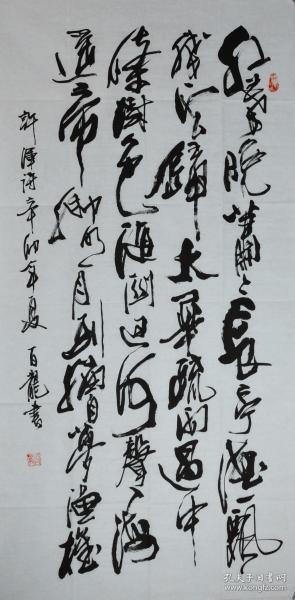 紅葉晚蕭〻長亭酒一瓢
殘雲歸太華疏雨過中
條樹色隨關迥河聲入海
遙帝鄉明日到猶自夢漁樵
許渾詩辛卯年夏百龍書
孔夫子旧书网